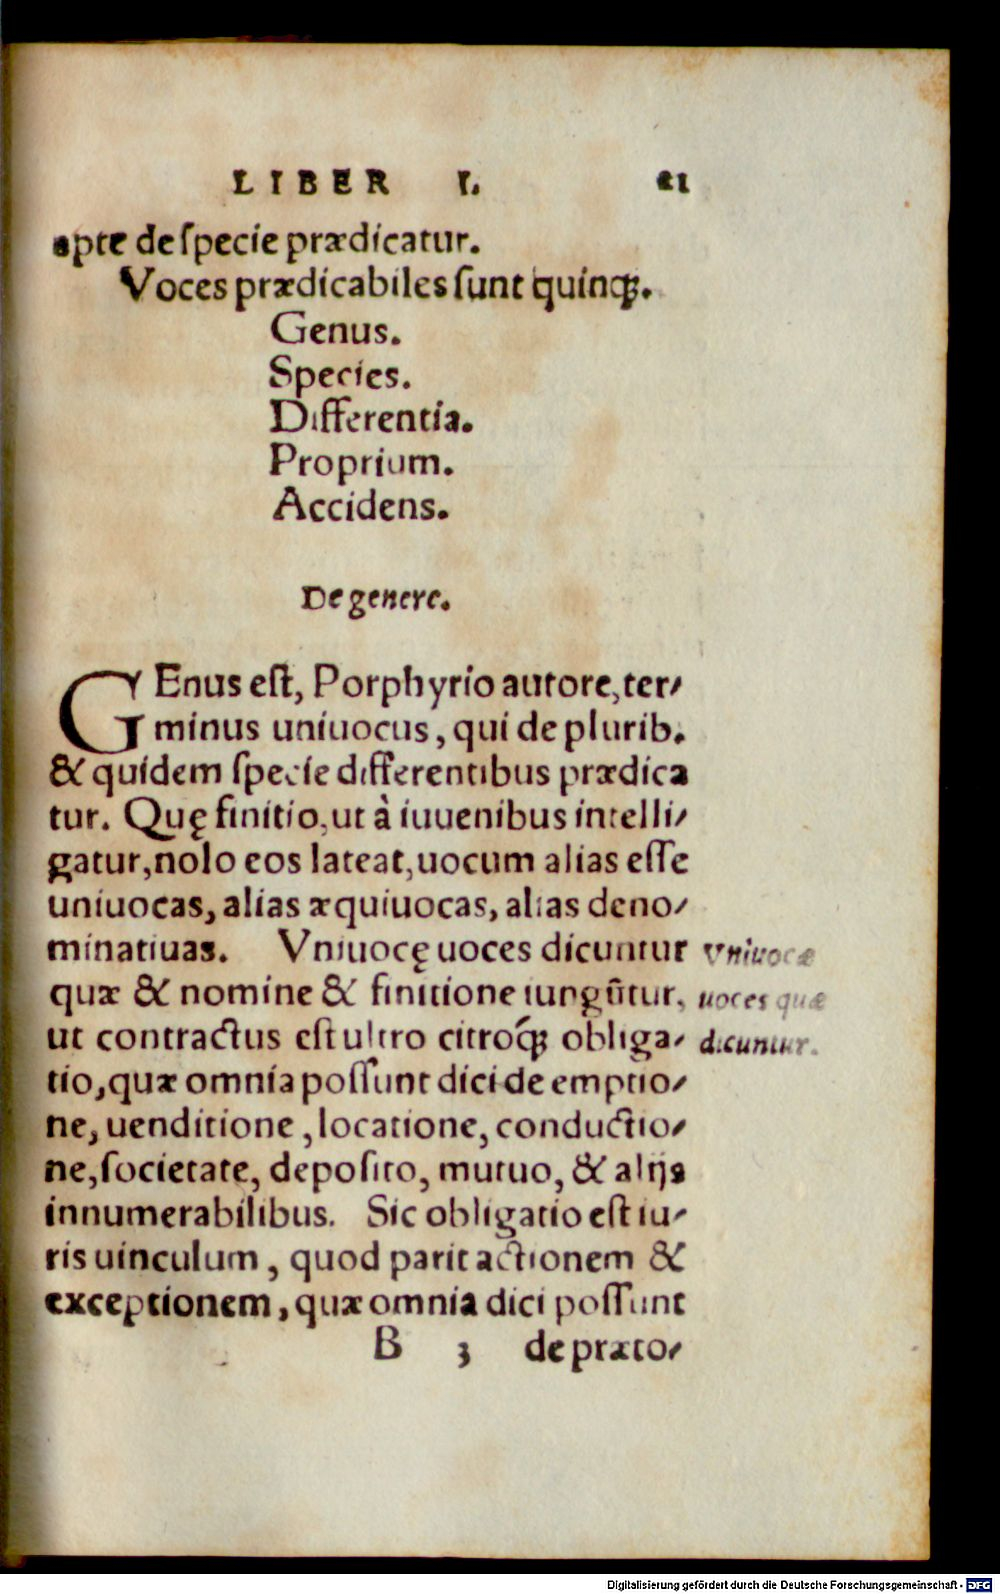 LIBER I. 21
apte de specie prædicatur.
Voces prædicabiles sunt quinqꝫ.
Genus.
Species.
Differentia.
Proprium.
Accidens.
De genere.
GEnus est, Porphyrio autore, ter/
minus uniuocus, qui de plurib.
& quidem specie differentibus prædica
tur. Quę finitio, ut à iuuenibus intelli/
gatur, nolo eos lateat, uocum alias esse
uniuocas, alias æquiuocas, alias deno/
minatiuas. Vniuocę uoces dicuntur
quæ & nomine & finitione iungũtur,
ut contractus est ultro citróqꝫ obliga/
tio, quæ omnia possunt dici de emptio/
ne, uenditione, locatione, conductio/
ne, societate, deposito, mutuo, & alijs
innumerabilibus. Sic obligatio est iu/
ris uinculum, quod parit actionem &
exceptionem, quæ omnia dici possunt
B 3 de præto/
Vniuocæ
uoces quæ
dicuntur.
Digitalisierung gefördert durch die Deutsche Forschungsgemeinschaft - DFG